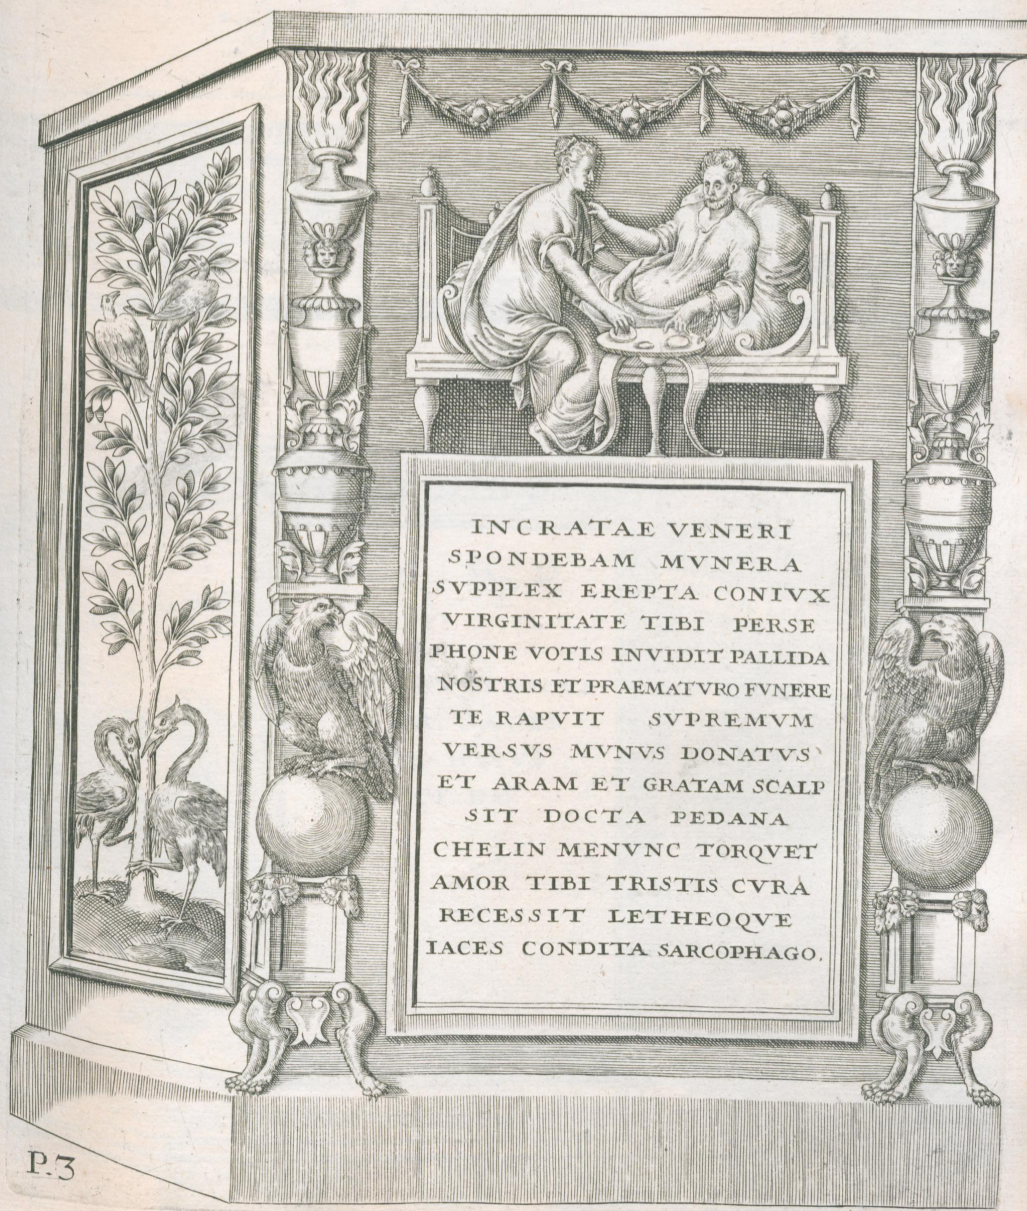 INCRATAE VENERI
SPONDEBAM MVNERA
SVPPLEX EREPTA CONIVX
VIRGINITATE TIBI PERSE
PHONE VOTIS INVIDIT PALLIDA
NOSTRIS ET PRAEMATVRO FVNERE
TE RAPVIT SVPREMVM
VERSVS MVNVS DONATVS
ET ARAM ET GRATAM SCALP
SIT DOCTA PEDANA
CHELIN MENVNC TORQVET
AMOR TIBI TRISTIS CVRA
RECESSIT LETHEOQVE
IACES CONDITA SARCOPHAGO.
P.3